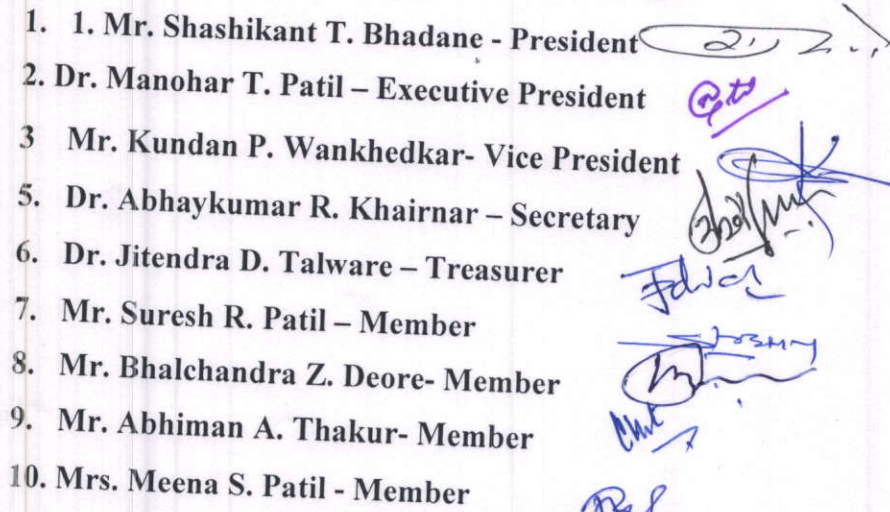 1. 1. Mr. Shashikant T. Bhadane - President
2. Dr. Manohar T. Patil – Executive President
3 Mr. Kundan P. Wankhedkar- Vice President
5. Dr. Abhaykumar R. Khairnar – Secretary
6. Dr. Jitendra D. Talware – Treasurer
7. Mr. Suresh R. Patil – Member
8. Mr. Bhalchandra Z. Deore- Member
9. Mr. Abhiman A. Thakur- Member
10. Mrs. Meena S. Patil - Member